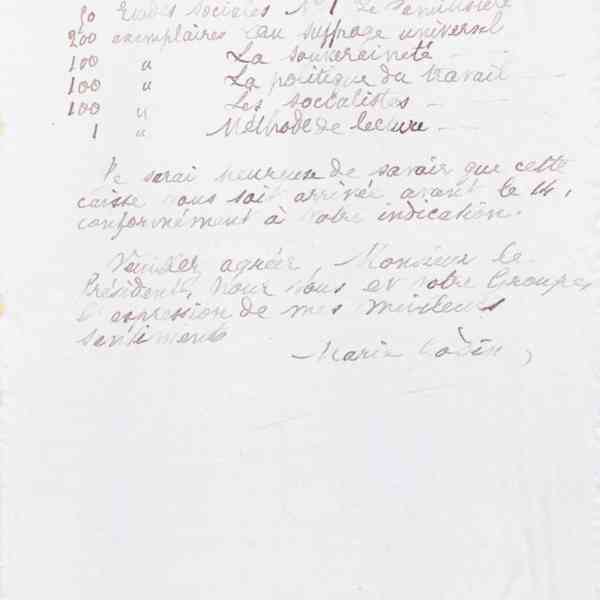 50 Etudes sociales N° 1 Le Familistère
200 exemplaires Du suffrage universel
100 " La souveraineté
100 " La politique du travail
100 " Les socialistes
1 " Méthode de lecture
Je serai heureuse de savoir que cette
caisse vous soit arrivée avant le 14,
conformément à votre indication.
Veuillez agréer Monsieur le
Président, pour vous et votre Groupe,
l'expression de mes meilleurs
sentiments
Marie Godin